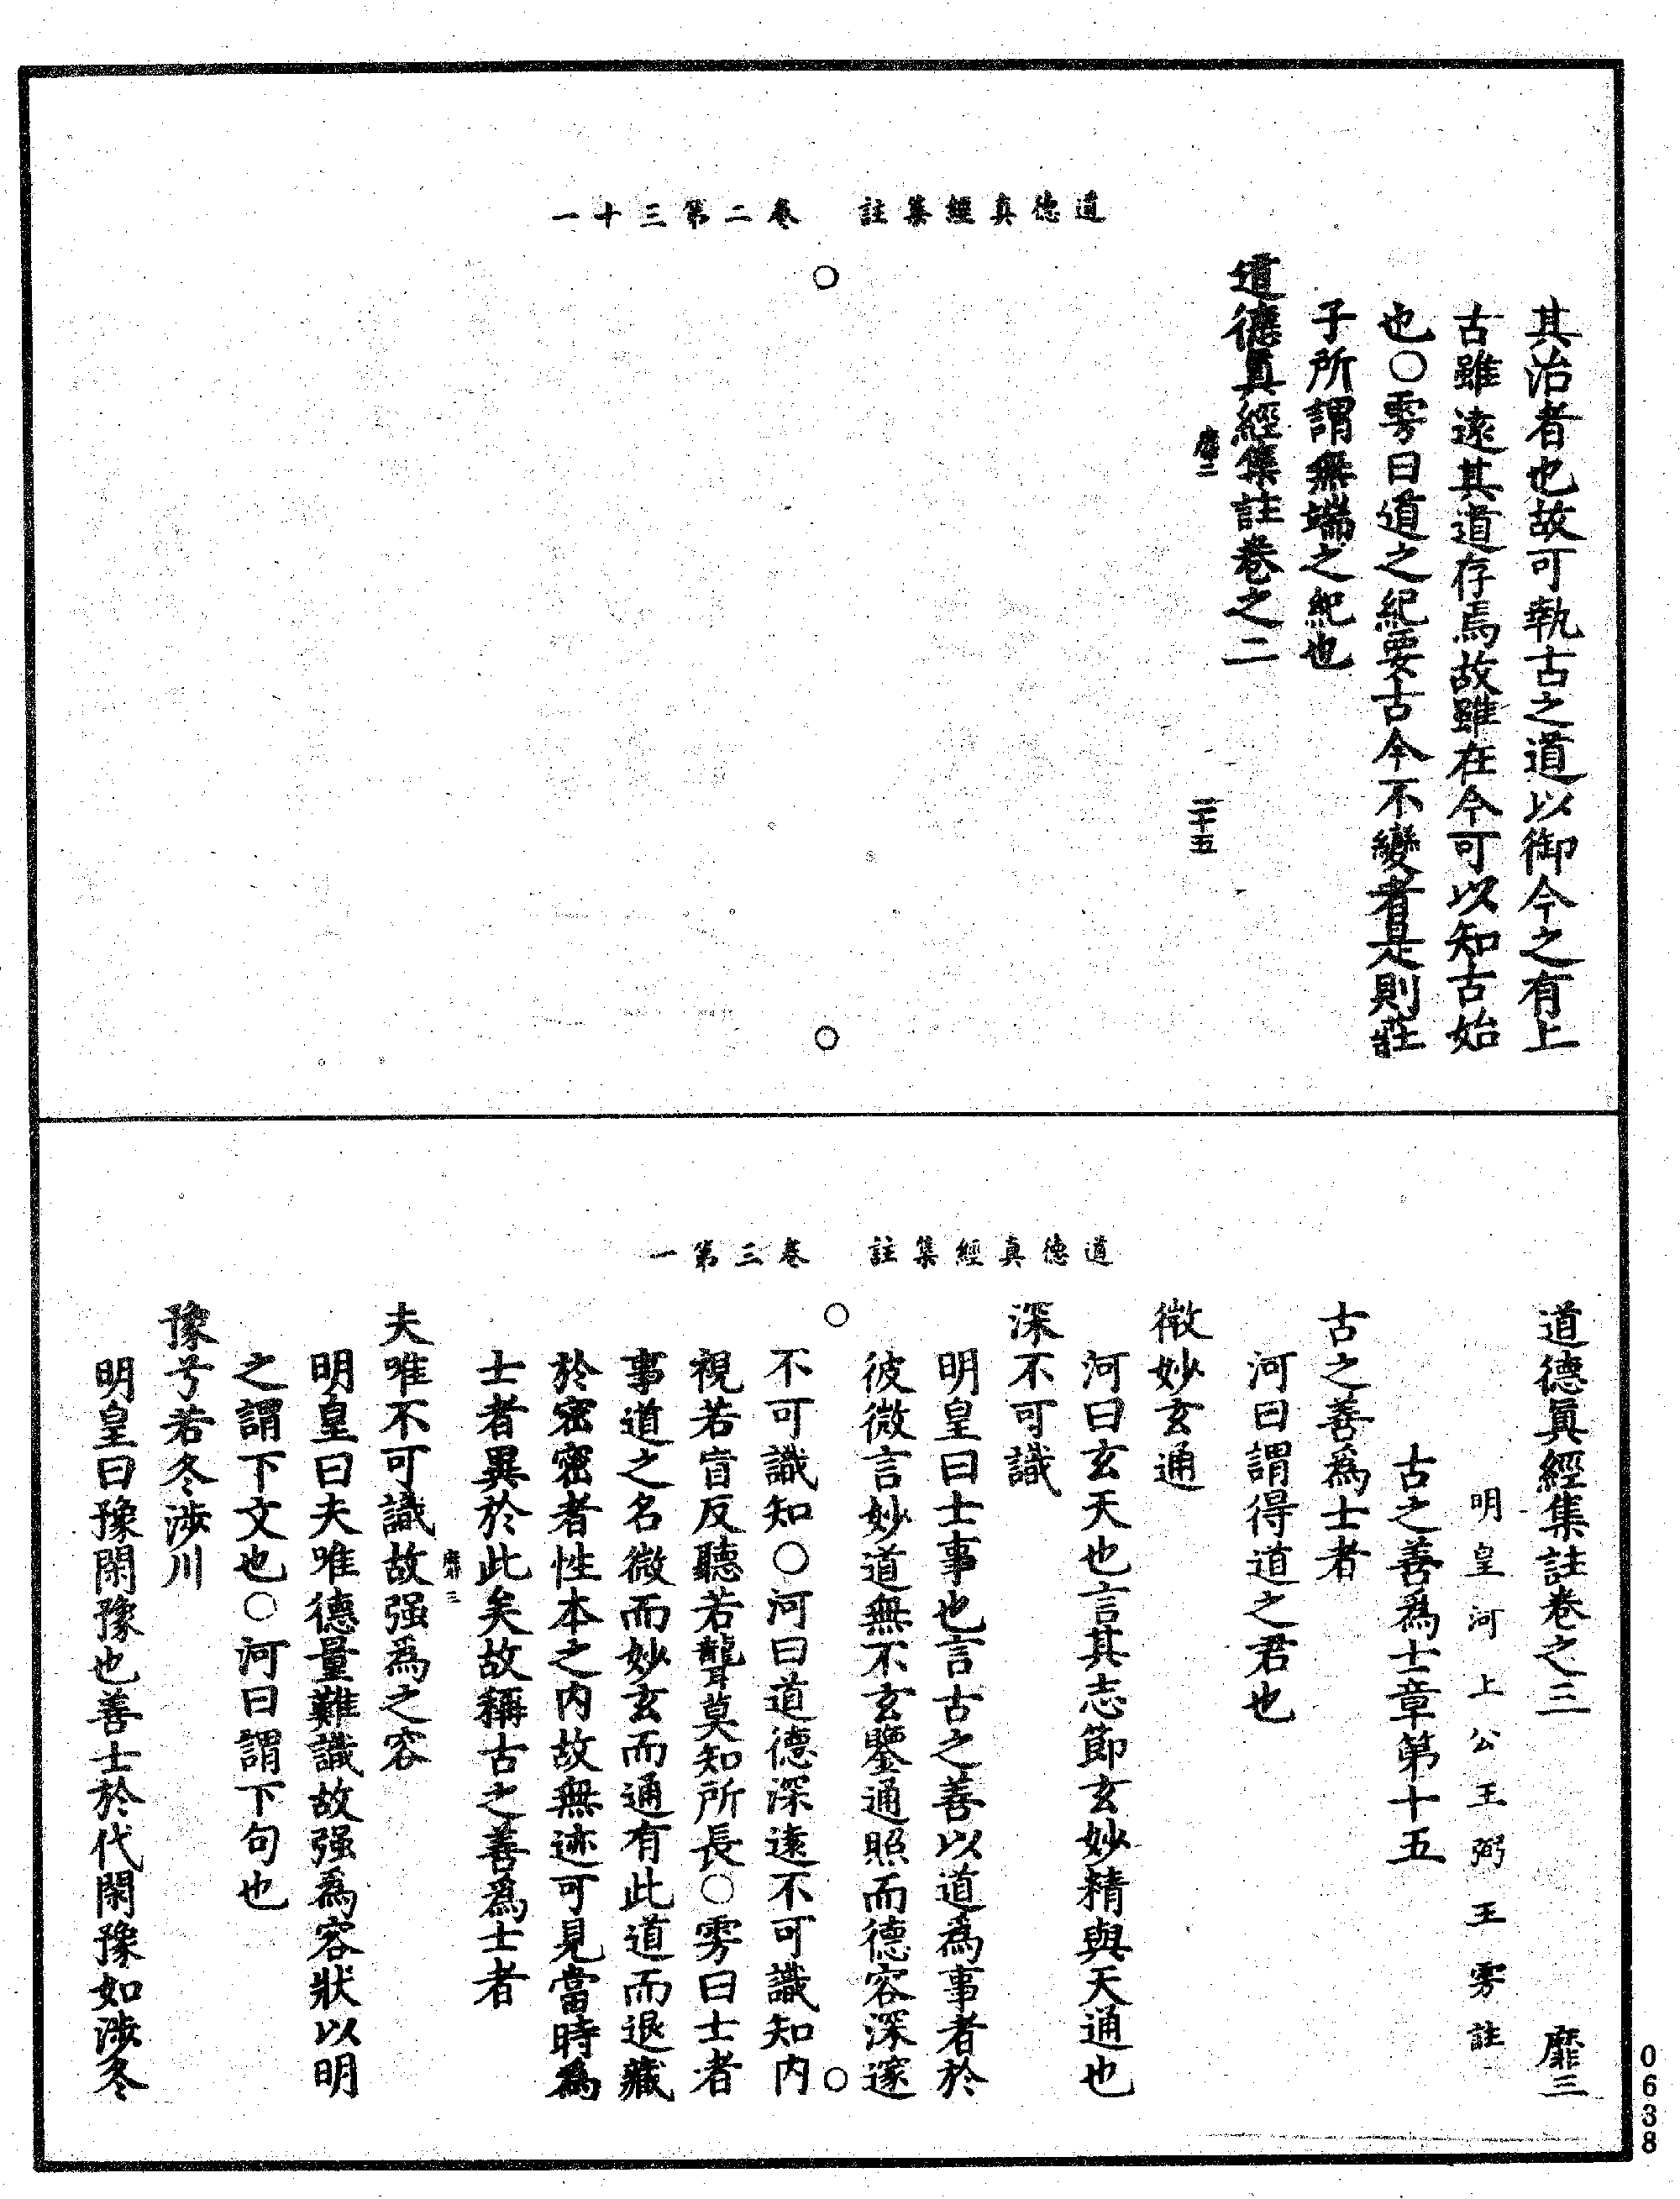 道德真經集註　卷二第三十一
其治者也故可執古之道以御今之有上
古雖遠其道存焉故雖在今可以知古始
也○雱曰道之紀要古今不變者是則莊
子所謂無端之紀也
道德眞經集註卷之二
靡二
二十五
道德真經集註　卷三第一
道德眞經集註卷之三　靡三
明皇河上公王弼王雱註
古之善爲士章第十五
古之善爲士者
河曰謂得道之君也
微妙玄通
河曰玄天也言其志節玄妙精與天通也
深不可識
明皇曰士事也言古之善以道爲事者於
彼微言妙道無不玄鑒通照而德容深邃
不可識知○河曰道德深遠不可識知内
視若盲反聽若聾莫知所長○雱曰士者
事道之名微而妙玄而通有此道而退藏
於密密者性本之内故無迹可見當時爲
士者異於此矣故稱古之善爲士者
靡三
夫唯不可識故强爲之容
明皇曰夫唯德量難識故强爲容狀以明
之謂下文也○河曰謂下句也
豫兮若冬涉川
明皇曰豫閑豫也善士於代閑豫如涉冬
0638